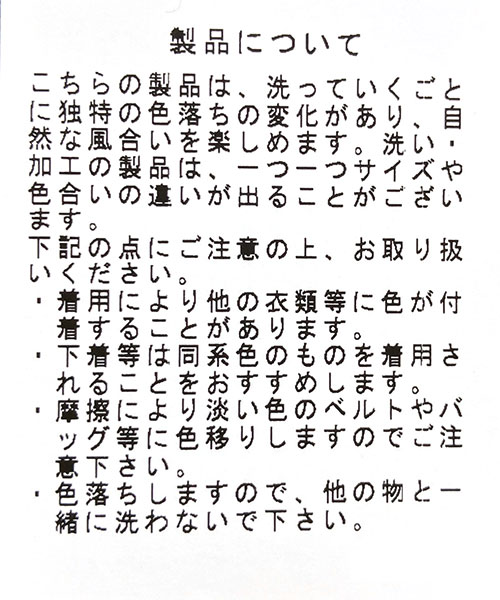 製品について
こちらの製品は、洗っていくごと
に独特の色落ちの変化があり、自
然な風合いを楽しめます。洗い・
加工の製品は、一つ一つサイズや
色合いの違いが出ることがござい
ます。
下記の点にご注意の上、お取り扱
いください。
・着用により他の衣類等に色が付
着することがあります。
・下着等は同系色のものを着用さ
れることをおすすめします。
・摩擦により淡い色のベルトやバ
ッグ等に色移りしますのでご注
意下さい。
・色落ちしますので、他の物と一
緒に洗わないで下さい。